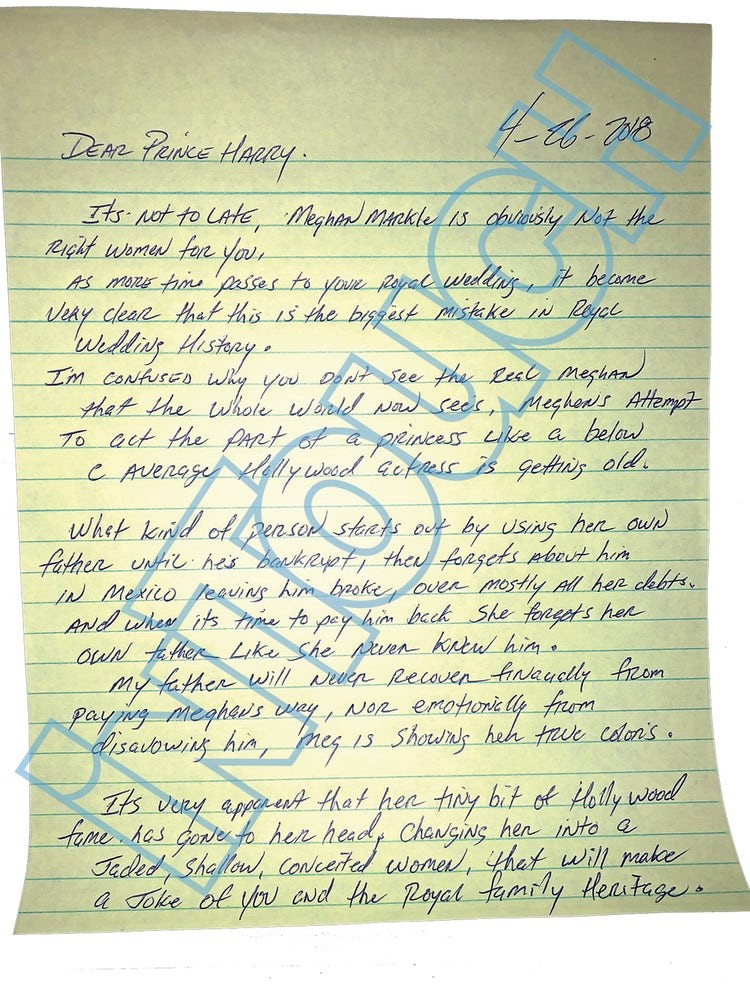 4-26-2018
DEAR PRINCE HARRY.
Its not to LATE, Meghan Markle is obviously Not the
right women for you,
As more time passes to your Royal Wedding, it become
very clear that this is the biggest mistake in Royal
Wedding History.
I'm confused why you don't see the Real Meghan
that the whole world now sees, Meghan's Attempt
To act the part of a princess like a below
C Average Hollywood actress is getting old.
What kind of person starts out by using her own
father until he's bankrupt, then forgets about him
in Mexico leaving him broke, over mostly all her debts.
And when its time to pay him back she forgets her
own father like she never knew him.
My father will never recover finacially from
paying Meghans way, Nor emotionally from
disavowing him, Meg is showing her true colors.
Its very apparent that her tiny bit of Hollywood
fame has gone to her head, Changing her into a
Jaded, Shallow, conceited women, that will make
a Joke of you and the Royal family Heritage.
inTouch